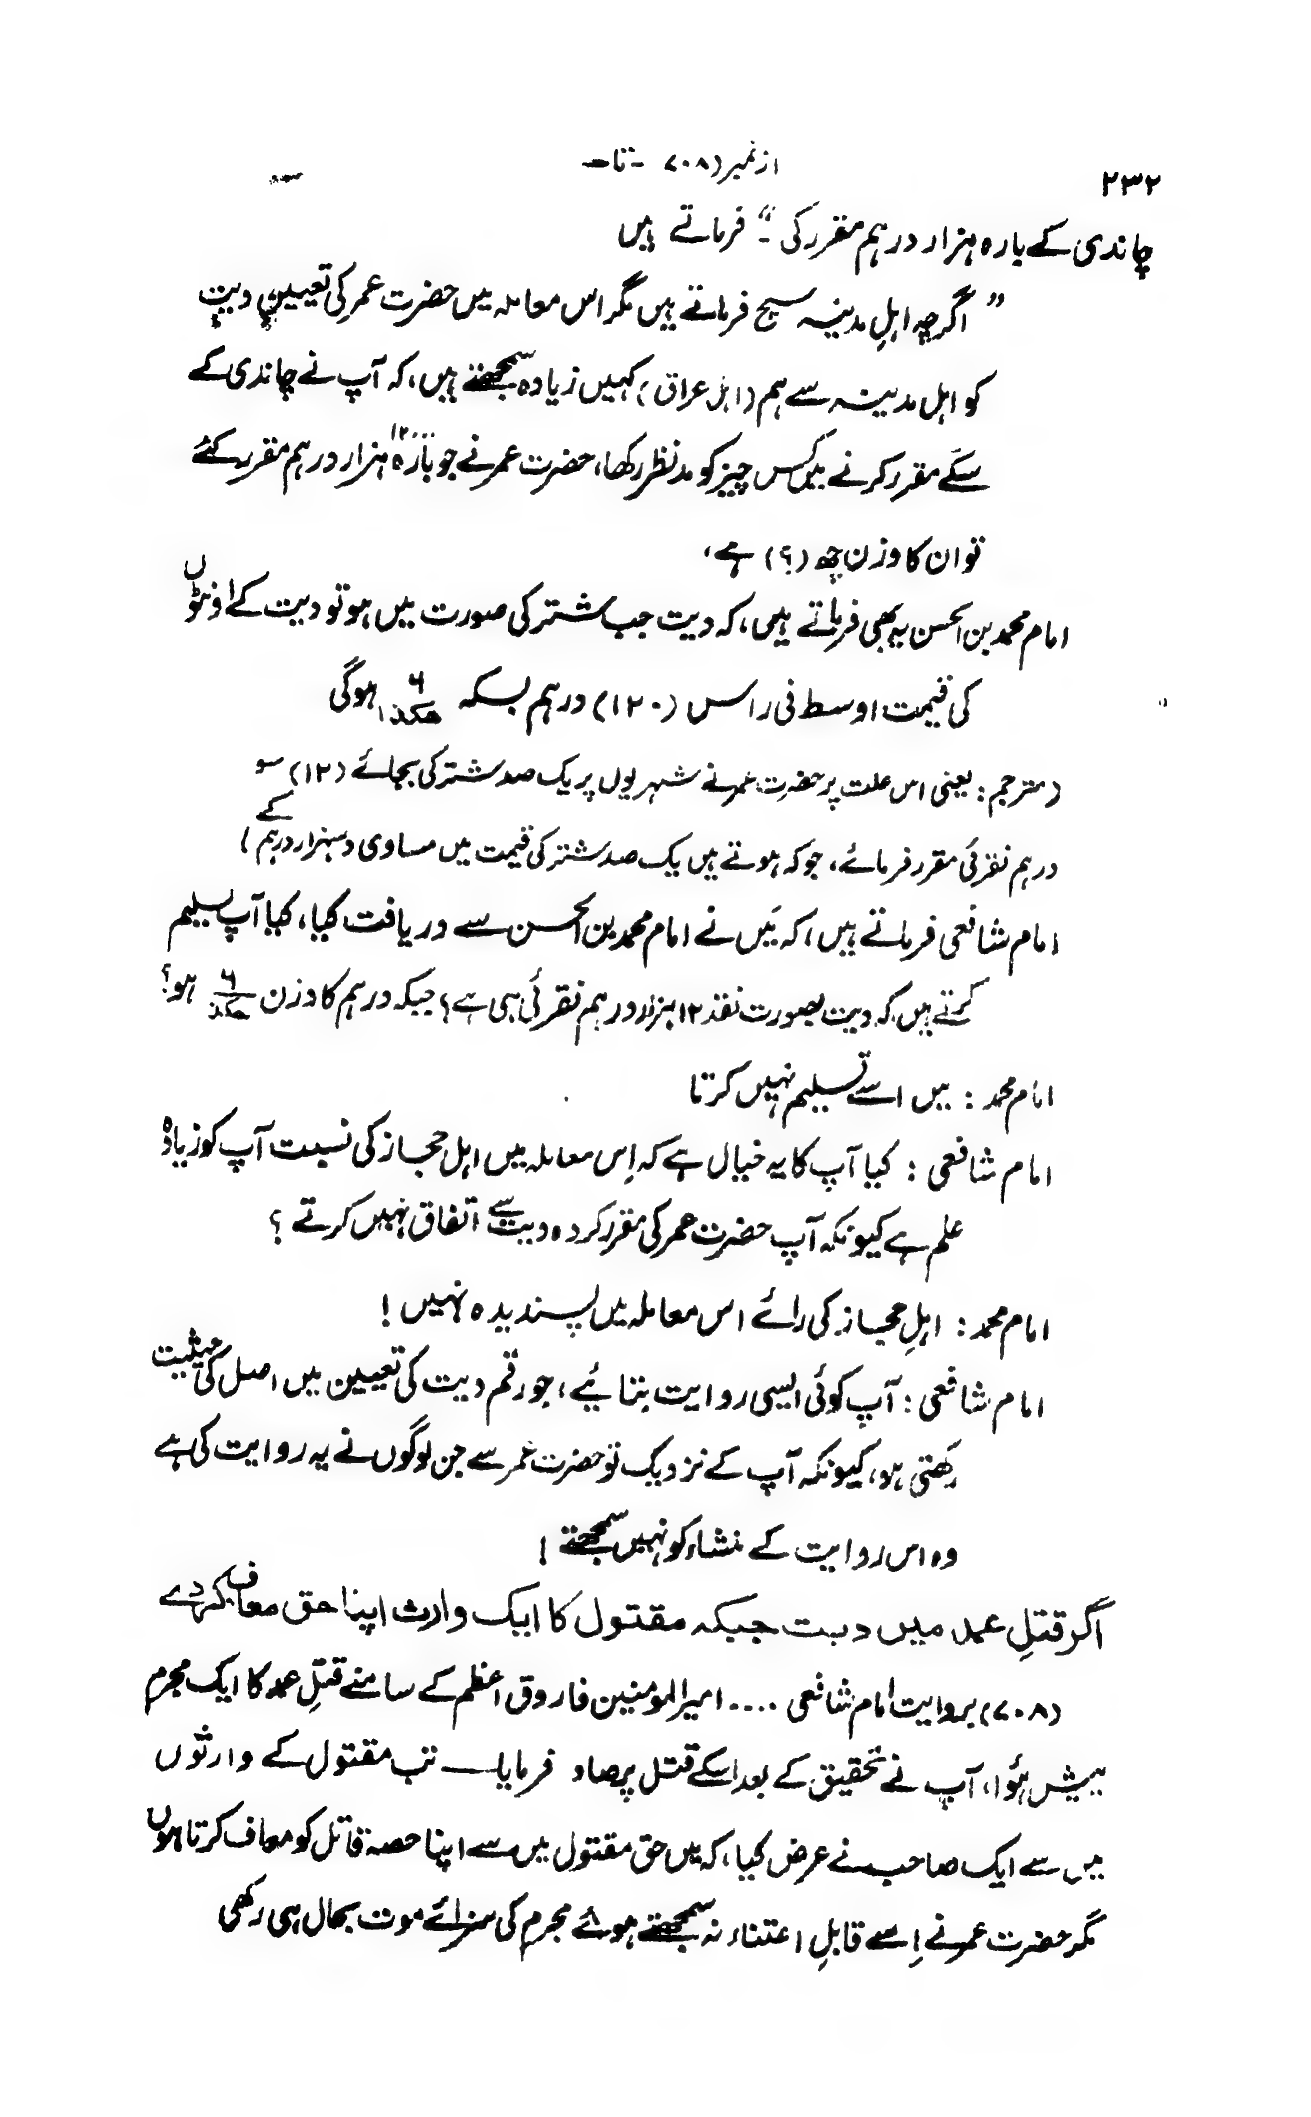 ۲۳۲
از نمبر (۷۰۸ - تا -
چاندی کے بارہ ہزار درہم مقرر کی ۔" فرماتے ہیں
" اگرچہ اہلِ مدینہ صحیح فرماتے ہیں مگر اس معاملہ میں حضرت عمر کی تعیینِ دیت
کو اہل مدینہ سے ہم (اہل عراق) کہیں زیادہ سمجھتے ہیں، کہ آپ نے چاندی کے
سکے مقرر کرنے میں کس چیز کو مد نظر رکھا، حضرت عمر نے جو بارہ ۱۲۰۰۰ ہزار درہم مقرر کئے
تو ان کا وزن چھ (؟) ہے،
امام محمد بن الحسن یہ بھی فرماتے ہیں، کہ دیت جب شتر کی صورت میں ہو تو دیت کے اونٹوں
کی قیمت اوسط فی راس (۱۲۰) درہم بسکہ ۶ ھکذا ہوگی
(مترجم: یعنی اس علت پر حضرت عمر نے شہریوں پر یک صد شتر کی بجائے (۱۲) سو
درہم نقرئی مقرر فرمائے، جو کہ ہوتے ہیں یک صد شتر کی قیمت میں مساوی دسہزار درہم کے)
امام شافعی فرماتے ہیں، کہ میں نے امام محمد بن الحسن سے دریافت کیا، کیا آپ تسلیم
کرتے ہیں کہ دیت بصورت نقد ۱۲ ہزار درہم نقرئی ہی ہے؟ جبکہ درہم کا وزن ۶ ھکذا ہو؟
امام محمد : میں اسے تسلیم نہیں کرتا
امام شافعی : کیا آپ کا یہ خیال ہے کہ اِس معاملہ میں اہل حجاز کی نسبت آپ کو زیادہ
علم ہے کیونکہ آپ حضرت عمر کی مقرر کردہ دیت سے اتفاق نہیں کرتے ؟
امام محمد : اہلِ حجاز کی رائے اس معاملہ میں پسندیدہ نہیں !
امام شافعی : آپ کوئی ایسی روایت بتائیے، جو رقم دیت کی تعیین میں اصل کی حیثیت
رکھتی ہو، کیونکہ آپ کے نزدیک تو حضرت عمر سے جن لوگوں نے یہ روایت کی ہے
وہ اس روایت کے منشاء کو نہیں سمجھتے !
اگر قتلِ عمد میں دیت جبکہ مقتول کا ایک وارث اپنا حق معاف کردے
(۷۰۸) بروایت امام شافعی .... امیر المومنین فاروق اعظم کے سامنے قتلِ عمد کا ایک مجرم
پیش ہُوا، آپ نے تحقیق کے بعد اسکے قتل پر صاد فرمایا — تب مقتول کے وارثوں
میں سے ایک صاحب نے عرض کیا، کہ میں حق مقتول میں سے اپنا حصہ قاتل کو معاف کرتا ہوں
مگر حضرت عمر نے اِسے قابلِ اعتناء نہ سمجھتے ہوئے مجرم کی سزائے موت بحال ہی رکھی